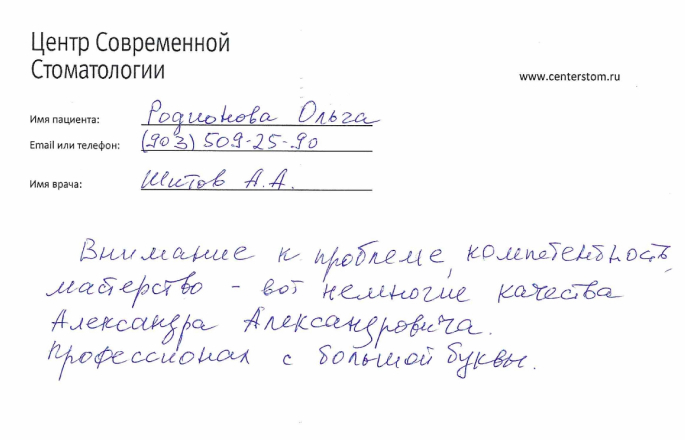 Центр Современной
Стоматологии
www.centerstom.ru
Имя пациента: Родионова Ольга
Email или телефон: (903) 509-25-90
Имя врача: Шитов А.А.
Внимание к проблеме, компетентность,
мастерство - вот немногие качества
Александра Александровича.
Профессионал с большой буквы.